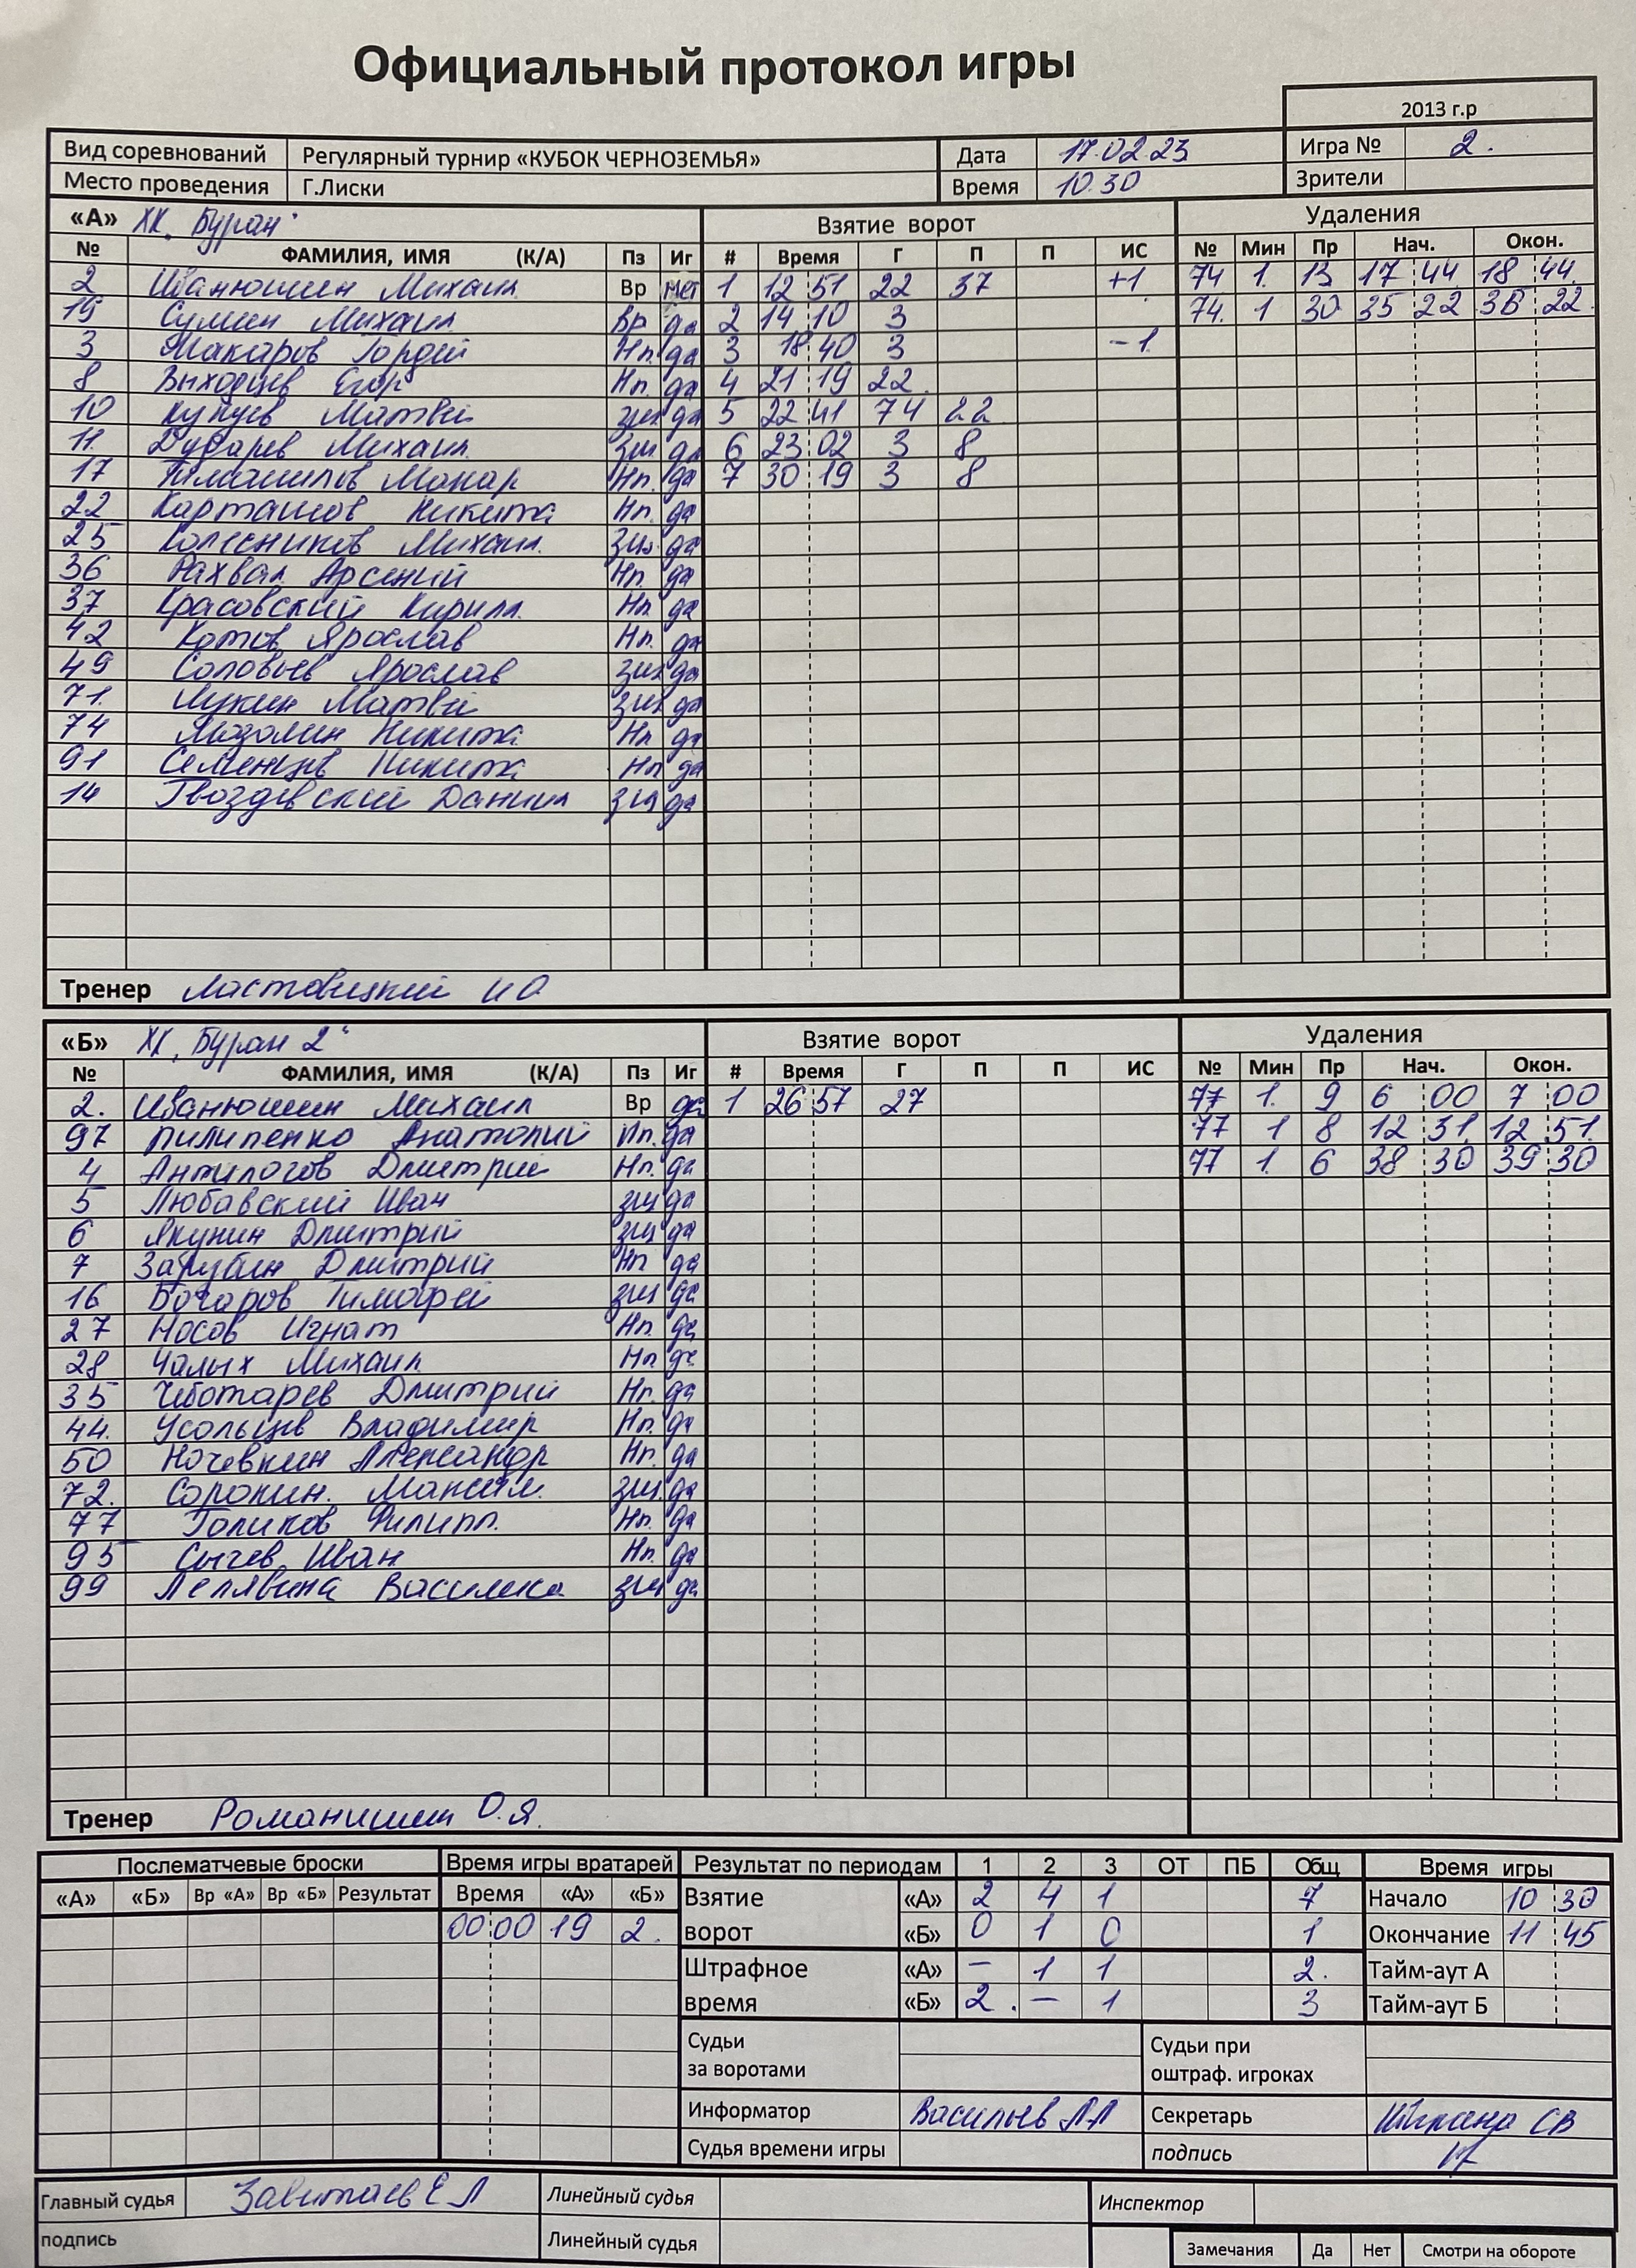 Официальный протокол игры
2013 г.р
Вид соревнований Регулярный турнир «КУБОК ЧЕРНОЗЕМЬЯ» Дата 17.02.23 Игра № 2.
Место проведения Г.Лиски Время 10.30 Зрители
«А» ХК "Буран" Взятие ворот Удаления
№ ФАМИЛИЯ, ИМЯ (К/А) Пз Иг # Время Г П П ИС № Мин Пр Нач. Окон.
2 Иванюшин Михаил Вр нет 1 12 51 22 37 +1 74 1. 13 17 44 18 44.
19 Сумин Михаил Вр да 2 14 10 3 74. 1 30 35 22 36 22.
3 Макаров Гордей Нп. да 3 18 40 3 -1.
8 Выходцев Егор Нп. да 4 21 19 22.
10 Матвей защ да 5 22 41 74 22
11. Дударев Михаил защ да 6 23 02 3 8
17 Нп. да 7 30 19 3 8
22 Карташов Никита Нп. да
25 Колесников Михаил защ. да
36 Рахвал Арсений Нп. да
37 Красовский Кирилл Нп. да
42 Котов Ярослав Нп. да
49 Соловьев Ярослав защ да
71. Лукин Матвей защ да
74 Мозолин Никита Нп да
91 Семенцов Никита Нп да
14 Гвоздевский Даниил защ да
Тренер Ластовицкий И О
«Б» ХК "Буран 2" Взятие ворот Удаления
№ ФАМИЛИЯ, ИМЯ (К/А) Пз Иг # Время Г П П ИС № Мин Пр Нач. Окон.
2. Иванюшин Михаил Вр да 1 26 57 27 77 1. 9 6 00 7 00
97 Пилипенко Анатолий Нп. да 77 1 8 12 31. 12 51.
4 Антилогов Дмитрий Нп. да 77 1. 6 38 30 39 30
5 Любавский Иван защ да
6 Якунин Дмитрий защ да
7 Зарубин Дмитрий Нп да
16 Бочаров Тимофей защ да
27 Носов Игнат Нп. да
28 Чалых Михаил Нп да
35 Чеботарев Дмитрий Нп. да
44. Усольцев Владимир Нп. да
50 Ночевкин Александр Нп. да
72. Сорокин. Максим. защ. да
77 Голиков Филипп. Нп. да
95 Сычев Иван Нп. да
99 Лелявина Василиса защ да
Тренер Романишин О.Я.
Послематчевые броски Время игры вратарей Результат по периодам 1 2 3 ОТ ПБ Общ Время игры
«А» «Б» Вр «А» Вр «Б» Результат Время «А» «Б» Взятие «А» 2 4 1 7 Начало 10 30
00 00 19 2. ворот «Б» 0 1 0 1 Окончание 11 45
Штрафное «А» — 1 1 2. Тайм-аут А
время «Б» 2. — 1 3 Тайм-аут Б
Судьи за воротами Судьи при оштраф. игроках
Информатор Васильев Секретарь СВ
Судья времени игры подпись
Главный судья Линейный судья Инспектор
подпись Линейный судья Замечания Да Нет Смотри на обороте